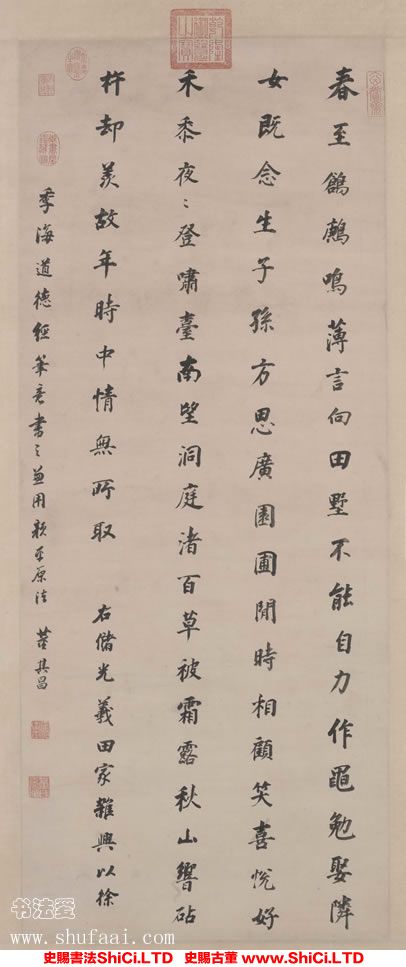 春至鶬鶊鳴薄言向田墅不能自力作黽勉娶隣
女既念生子孫方思廣園圃閒時相顧笑喜悅好
禾黍夜々登嘯臺南望洞庭渚百草被霜露秋山響砧
杵却羨故年時中情無所取 右儲光羲田家雜興以徐
季海道德經筆意書之兼用顏平原法 董其昌
书法爱
www.shufaai.com
史賜書法ShiCi.LTD 史賜古董 www.ShiCi.LTD